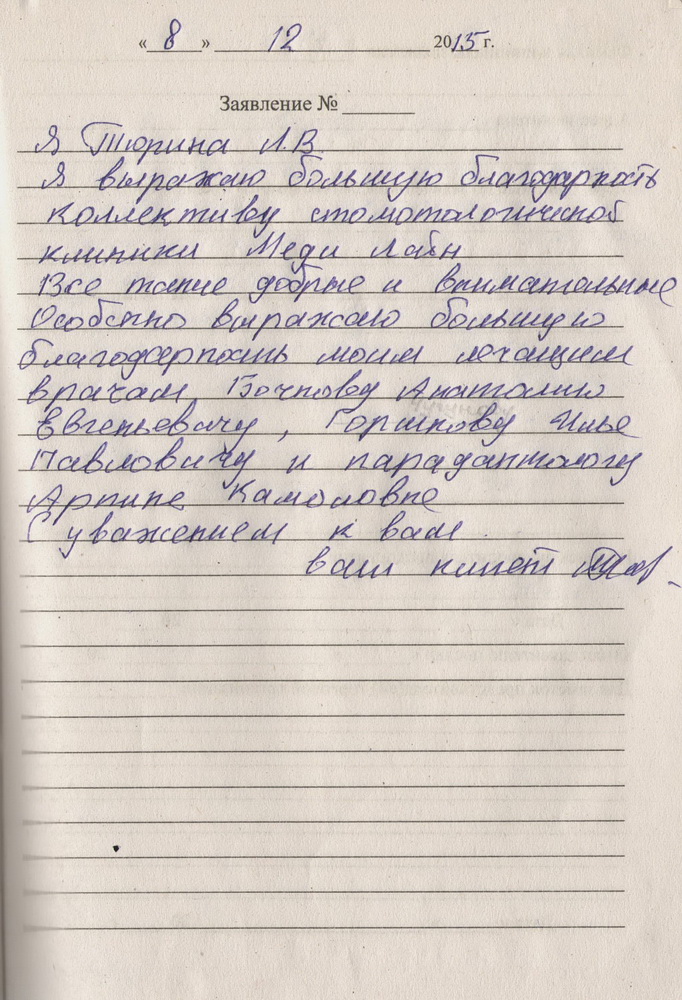 « 8 » 12 2015 г.
Заявление №
Я Тюрина Л.В.
Я выражаю большую благодарность
коллективу стомотологической
клиники Меди Лайн
Все такие добрые и внимательные
Особенно выражаю большую
благодарность моим лечащим
врачам Бочкову Анатолию
Евгеньевичу, Горшкову Илье
Павловичу и парадантологу
Арпине Камоловне
С уважением к вам
ваш клиент